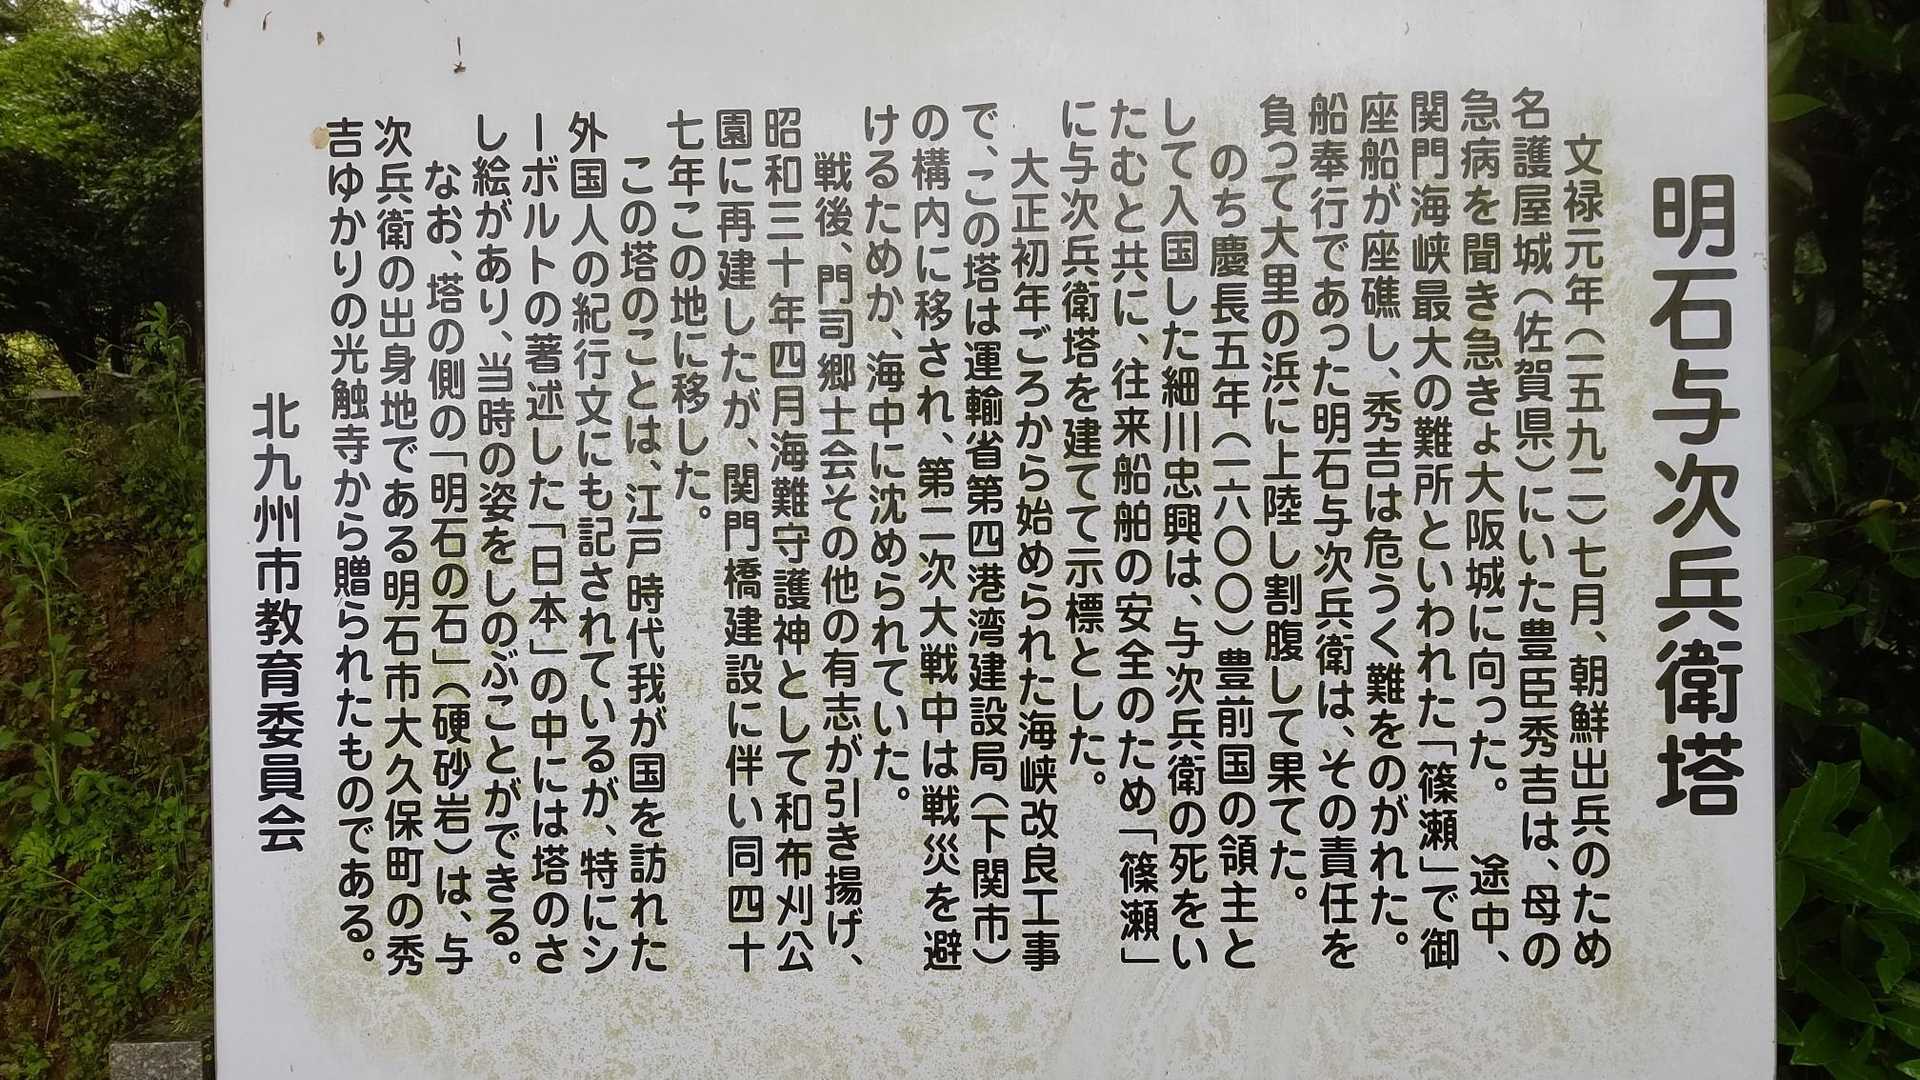 明石与次兵衛塔
文禄元年(一五九二)七月、朝鮮出兵のため
名護屋城(佐賀県)にいた豊臣秀吉は、母の
急病を聞き急きょ大阪城に向った。 途中、
関門海峡最大の難所といわれた「篠瀬」で御
座船が座礁し、秀吉は危うく難をのがれた。
船奉行であった明石与次兵衛は、その責任を
負って大里の浜に上陸し割腹して果てた。
のち慶長五年(一六〇〇)豊前国の領主と
して入国した細川忠興は、与次兵衛の死をい
たむと共に、往来船舶の安全のため「篠瀬」
に与次兵衛塔を建てて示標とした。
大正初年ごろから始められた海峡改良工事
で、この塔は運輸省第四港湾建設局(下関市)
の構内に移され、第二次大戦中は戦災を避
けるためか、海中に沈められていた。
戦後、門司郷土会その他の有志が引き揚げ、
昭和三十年四月海難守護神として和布刈公
園に再建したが、関門橋建設に伴い同四十
七年この地に移した。
この塔のことは、江戸時代我が国を訪れた
外国人の紀行文にも記されているが、特にシ
ーボルトの著述した「日本」の中には塔のさ
し絵があり、当時の姿をしのぶことができる。
なお、塔の側の「明石の石」(硬砂岩)は、与
次兵衛の出身地である明石市大久保町の秀
吉ゆかりの光触寺から贈られたものである。
北九州市教育委員会